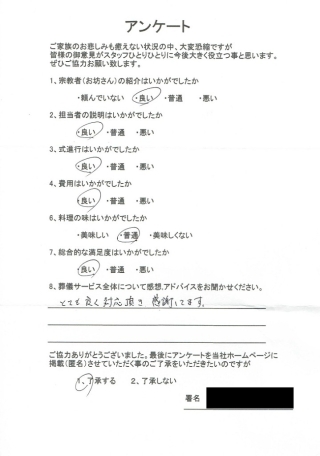 アンケート
ご家族のお悲しみも癒えない状況の中、大変恐縮ですが
皆様の御意見がスタッフひとりひとりに今後大きく役立つ事と思います。
ぜひご協力お願い致します。
1、宗教者(お坊さん)の紹介はいかがでしたか
・頼んでいない ・良い ・普通 ・悪い
2、担当者の説明はいかがでしたか
・良い ・普通 ・悪い
3、式進行はいかがでしたか
・良い ・普通 ・悪い
4、費用はいかがでしたか
・良い ・普通 ・悪い
6、料理の味はいかがでしたか
・美味しい ・普通 ・美味しくない
7、総合的な満足度はいかがでしたか
・良い ・普通 ・悪い
8、葬儀サービス全体について感想、アドバイスをお聞かせください。
とても良く対応頂き感謝してます。
ご協力ありがとうございました。最後にアンケートを当社ホームページに
掲載(匿名)させていただく事のご了承をいただきたいのですが
1、了承する 2、了承しない
署名